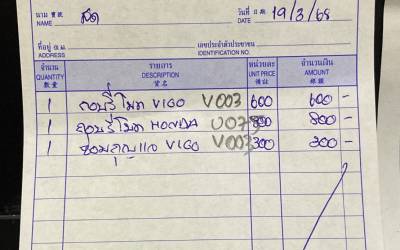 นาม 寶號 NAME สด วันที่ 日期 DATE 19/3/68
ที่อยู่ 住址 ADDRESS เลขประจำตัวประชาชน IDENTIFICATION NO.
จำนวน รายการ หน่วยละ จำนวนเงิน
QUANTITY DESCRIPTION UNIT PRICE AMOUNT
數量 貨名 價註 銀額
1 ถอบรีโมท VIGO V003 600 600 -
1 รีโมท HONDA 800 800 -
1 ซ่อมกุญแจ VIGO V003 300 300 -